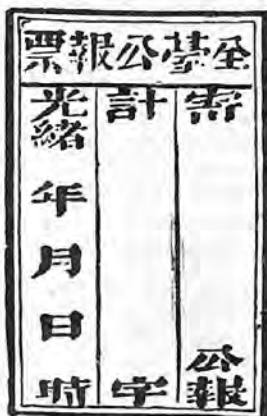 全臺公報票
寄 公報
計 字
光緒 年 月 日 時